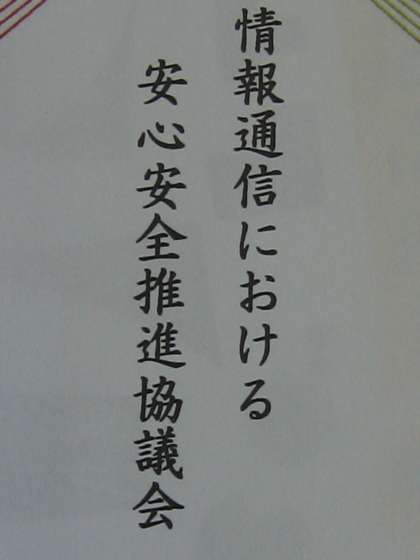 情報通信における
安心安全推進協議会